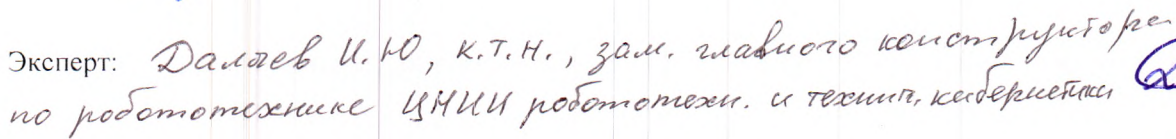 Эксперт: Даляев И.Ю, к.т.н., зам. главного конструктора
по робототехнике ЦНИИ робототехн. и технич. кибернетики